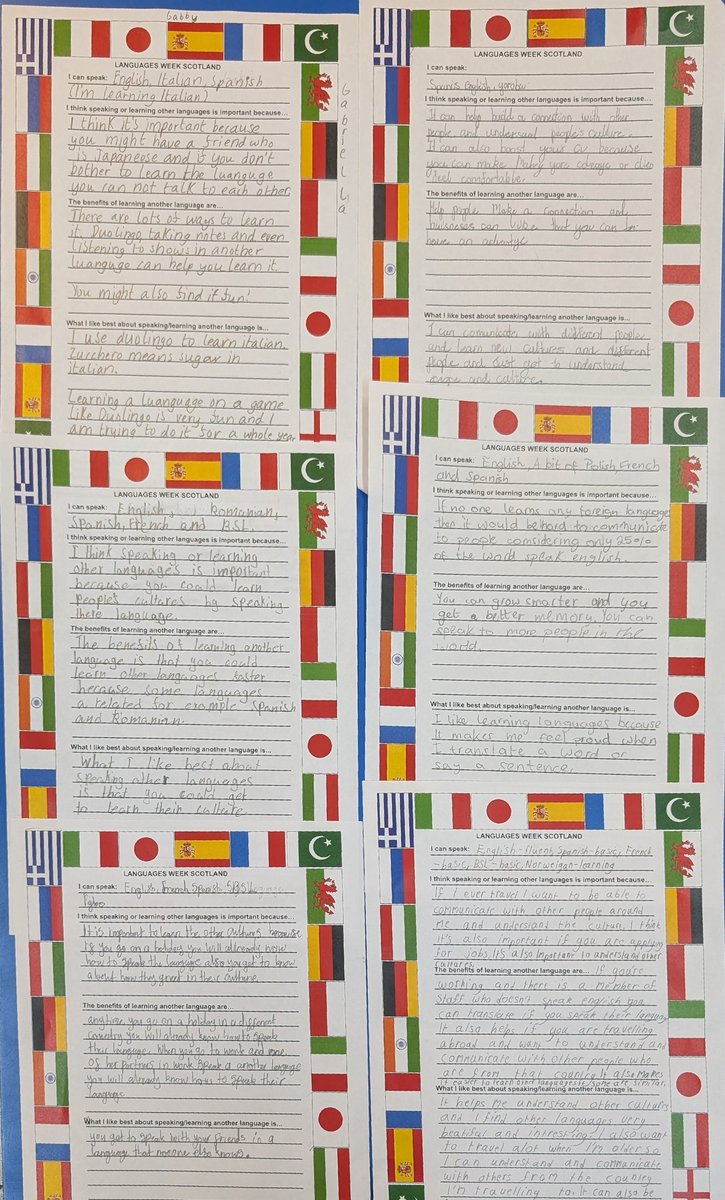 Gabby
LANGUAGES WEEK SCOTLAND
I can speak: English, Italian, Spanish
(I'm learning Italian)
I think speaking or learning other languages is important because...
I think it's important because
you might have a friend who
is Japaneese and if you don't
bother to learn the luanguge
you can not talk to each other.
The benefits of learning another language are...
There are lots of ways to learn
it. Duolingo taking notes and even
listening to shows in another
luanguge can help you learn it.
You might also find it fun!
What I like best about speaking/learning another language is...
I use duolingo to learn italian.
Zucchero means sugar in
italian.
Learning a luanguage on a game
like Duolingo is very fun and I
am trying to do it for a whole year
LANGUAGES WEEK SCOTLAND
I can speak:
English,
I think speaking or learning other languages is important because...
It can help build a connection with other
people and understand people's culture.
It can also boost your CV because
you can make
feel comfortable.
The benefits of learning another language are...
Help people make a connection and
can
that you can
have an
What I like best about speaking/learning another language is...
I can comunicate with different people
and learn new cultures and different
people and Just get to understand
people and culture.
LANGUAGES WEEK SCOTLAND
I can speak: English, Romanian,
Spanish, French and BSL.
I think speaking or learning other languages is important because...
I think speaking or learning
other languages is important
because you could learn
people's cultures by speaking
there language.
The benefits of learning another language are...
The benefits of learning another
language is that you could
learn other languages faster
because some languages
a related for example Spanish
and Romanian.
What I like best about speaking/learning another language is...
What I like best about
speaking other languages
is that you could get
to learn their culture
LANGUAGES WEEK SCOTLAND
I can speak: English, A bit of Polish, French
and Spanish
I think speaking or learning other languages is important because...
If no one learns any foreign languages
then it would be hard to communicate
to people considering only 25%
of the word speak english.
The benefits of learning another language are...
You can grow smarter and you
get a better memory. You can
speak to more people in the
world.
What I like best about speaking/learning another language is...
I like learning languages because
it makes me feel proud when
I translate a word or
say a sentence.
LANGUAGES WEEK SCOTLAND
I can speak: English, french, Spanish,
Igbo
I think speaking or learning other languages is important because...
It is important to learn the other cultures because
if you go on a holiday you will allready know
how to speak the language also you get to know
about how they greet in their culture.
The benefits of learning another language are...
anytime you go on a holiday in a different
country you will already know how to speak
their language. When you go to work and one
of her partners in work speak a another language
you will already know how to speak their
language
What I like best about speaking/learning another language is...
you get to speak with your friends in a
language that noone else knows.
LANGUAGES WEEK SCOTLAND
I can speak: English-fluent, Spanish-basic, French
-basic, BSL-basic, Norweigan-learning
I think speaking or learning other languages is important because...
If I ever travel I want to be able to
communicate with other people around
me, and understand the culture. I think
it's also important if you are applying
for jobs. It's also important to understand other
cultures.
The benefits of learning another language are... If you're
working and there is a member of
staff who doesn't speak english you
can translate if you speak their language
It also helps if you are travelling
abroad and want to understand and
communicate with other people who
are from that country. It also makes
it easier to learn other languages if some are similar.
What I like best about speaking/learning another language is...
It helps me understand other cultures
and I find other languages very
beatiful and intresting. I also want
to travel alot when I'm older so
I can understand and communicate
with others from the country
I'm travelling to. It can also be